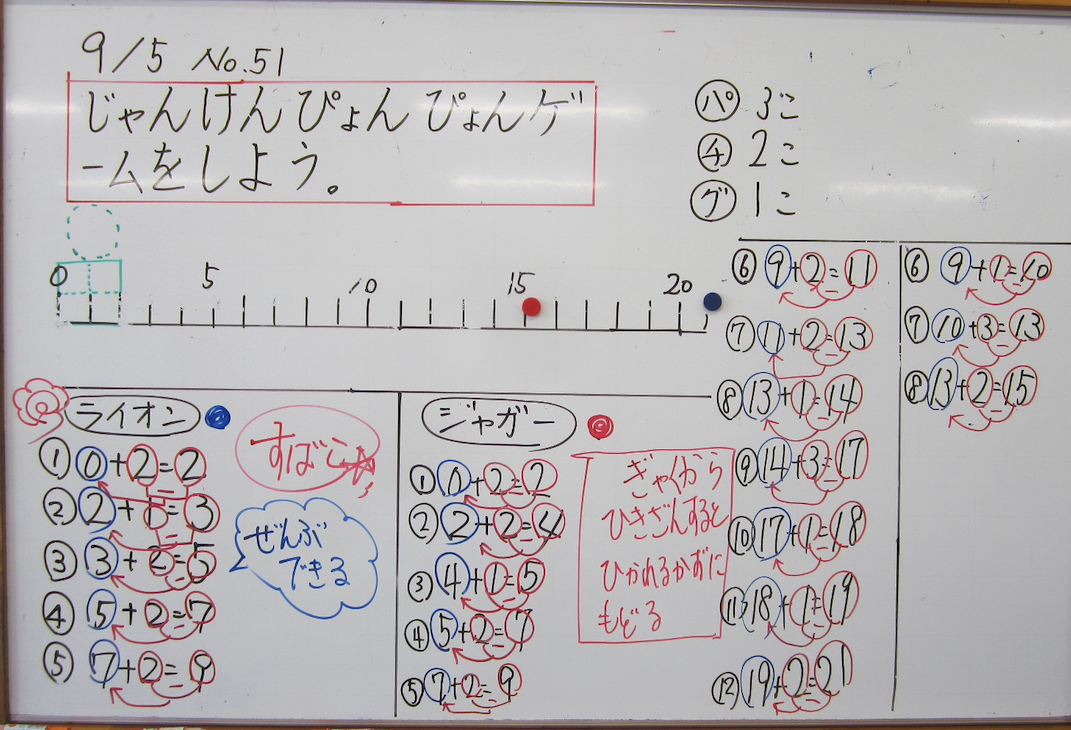 9/5 No.51
じゃんけんぴょんぴょんゲ
ームをしよう。
パ 3こ
チ 2こ
グ 1こ
0 5 10 15 20
ライオン
① 0+2=2
② 2+1=3
③ 3+2=5
④ 5+2=7
⑤ 7+2=9
すばこ
ぜんぶ
できる
ジャガー
① 0+2=2
② 2+2=4
③ 4+1=5
④ 5+2=7
⑤ 7+2=9
ぎゃくから
ひきざんすると
ひかれるかずに
もどる
⑥ 9+2=11
⑦ 11+2=13
⑧ 13+1=14
⑨ 14+3=17
⑩ 17+1=18
⑪ 18+1=19
⑫ 19+2=21
⑥ 9+1=10
⑦ 10+3=13
⑧ 13+2=15